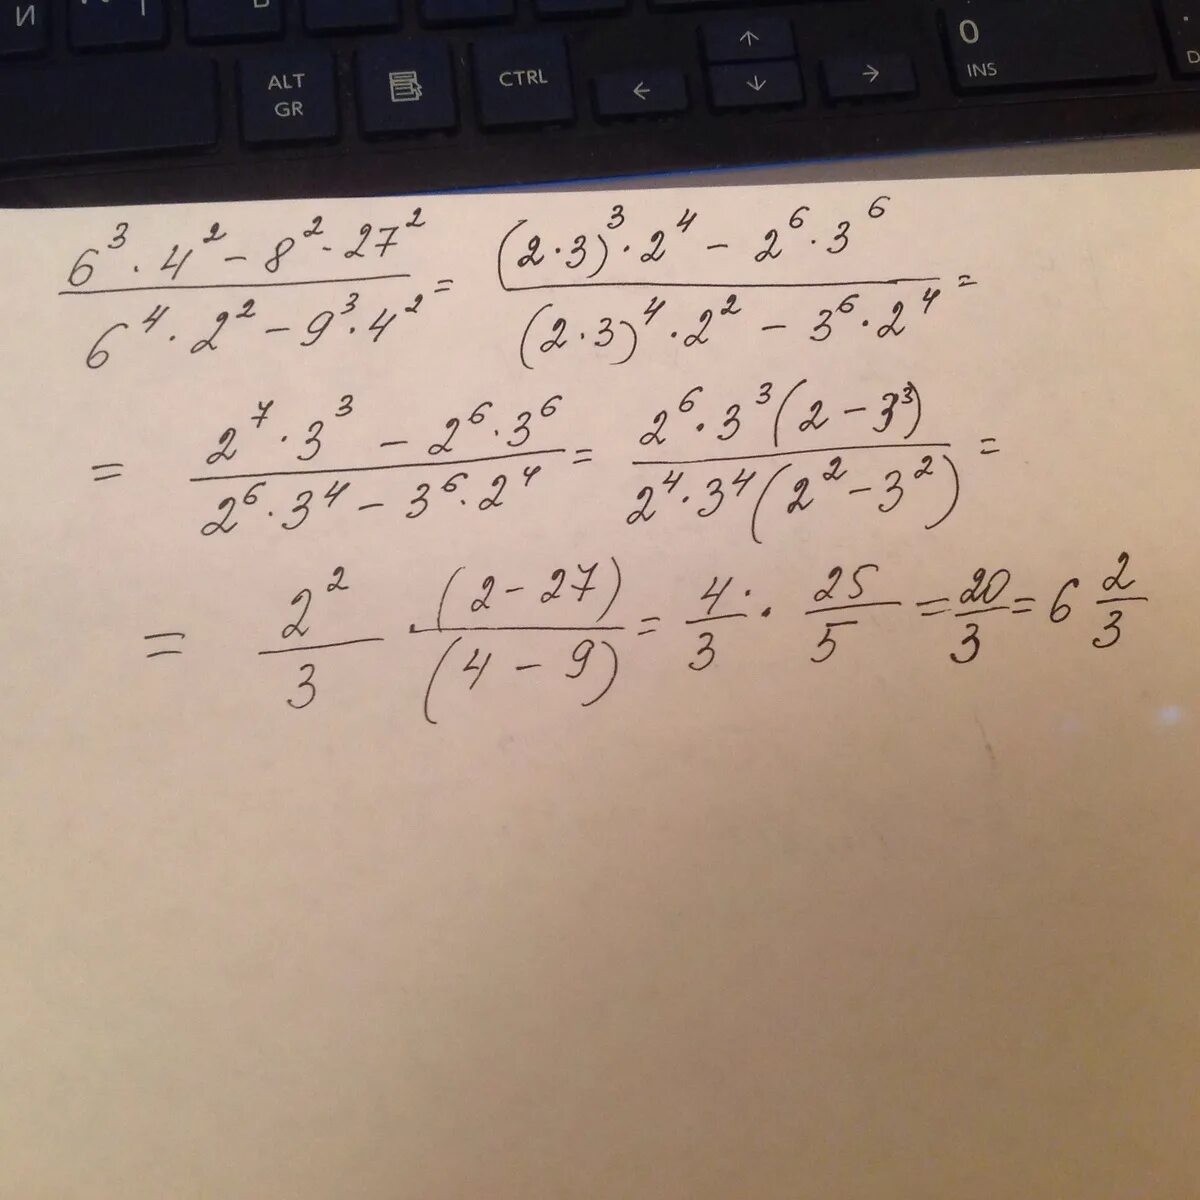 И
ALT GR
CTRL
↑
←
↓
→
0
INS
(6³ · 4² − 8² · 27²) / (6⁴ · 2² − 9³ · 4²) = ((2·3)³ · 2⁴ − 2⁶ · 3⁶) / ((2·3)⁴ · 2² − 3⁶ · 2⁴) =
= (2⁷ · 3³ − 2⁶ · 3⁶) / (2⁶ · 3⁴ − 3⁶ · 2⁴) = (2⁶ · 3³ (2 − 3³)) / (2⁴ · 3⁴ (2² − 3²)) =
= 2²/3 · (2 − 27)/(4 − 9) = 4/3 · 25/5 = 20/3 = 6 2/3